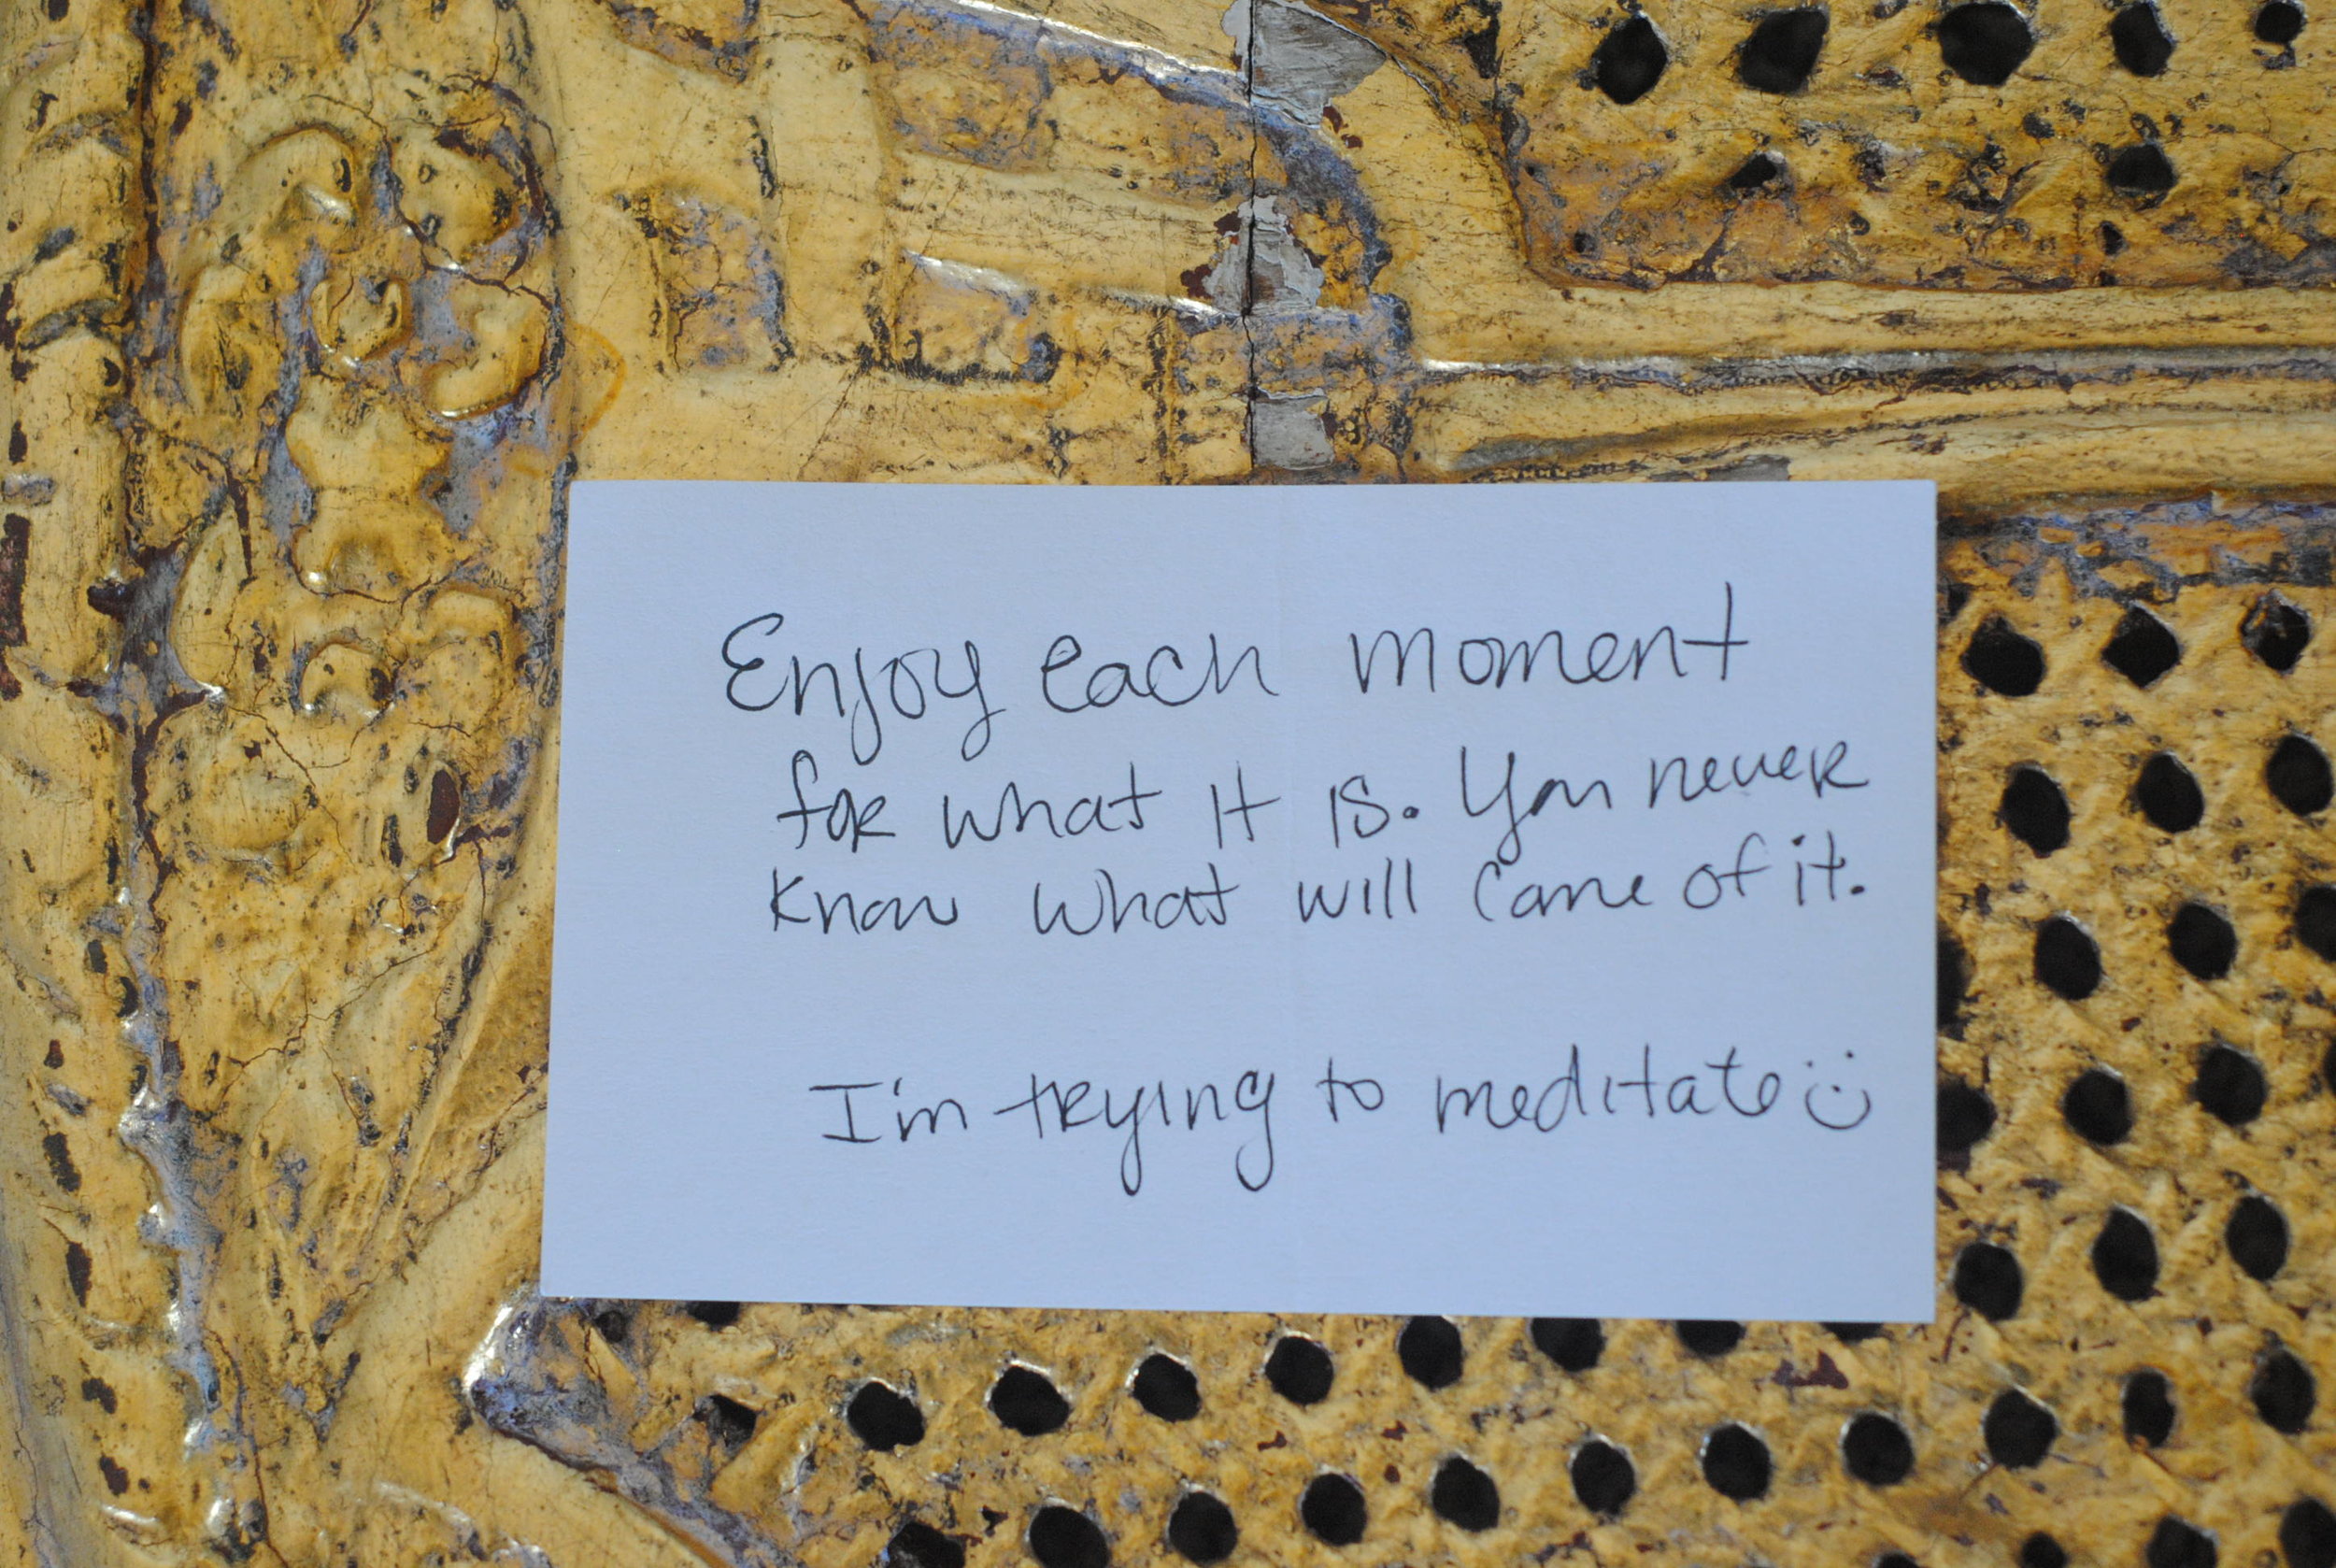 Enjoy each moment
for what it is. You never
know what will come of it.
I'm trying to meditate :)